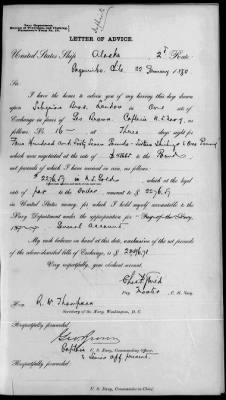 Navy Department,
Bureau of Provisions and Clothing
LETTER OF ADVICE.
United States Ship Alaska 2d Rate
Coquimbo, Chile 22 January 1880
I have the honor to advise you of my having this day drawn
upon Seligman Bros. London in One sets
of Exchange in favor of Geo Brown, Captain U.S. Navy, as
follows:
No. 16 at Three days' sight for
Four Hundred and Forty Seven Pounds Sixteen Shillings & One Penny
which were negotiated at the rate of to the Pound
net proceeds of which I have received in coin, as follows:
in U.S. Gold which at the legal
rate of par to the Dollar, amount to $
in United States money, for which I hold myself accountable to the
Navy Department under the appropriation for Pay of the Navy,
General account.
My cash balance on hand at this date, exclusive of the net proceeds
of the above-described bills of Exchange, is $
Very respectfully, your obedient servant,
Pay U. S. Navy.
Hon. R. W. Thompson
Secretary of the Navy, Washington, D. C.
Respectfully forwarded,
Geo Brown
Captain U. S. Navy, Commanding Officer.
& Senior Off. present.
Respectfully forwarded,
U. S. Navy, Commander-in-Chief.